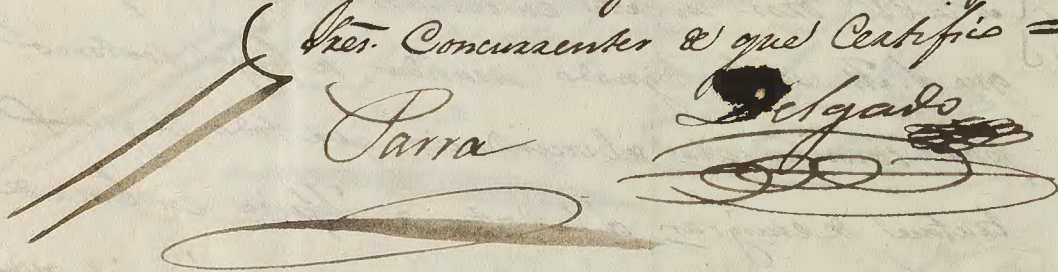 Sres. Concurrentes de que Certifico =
Parra
Delgado